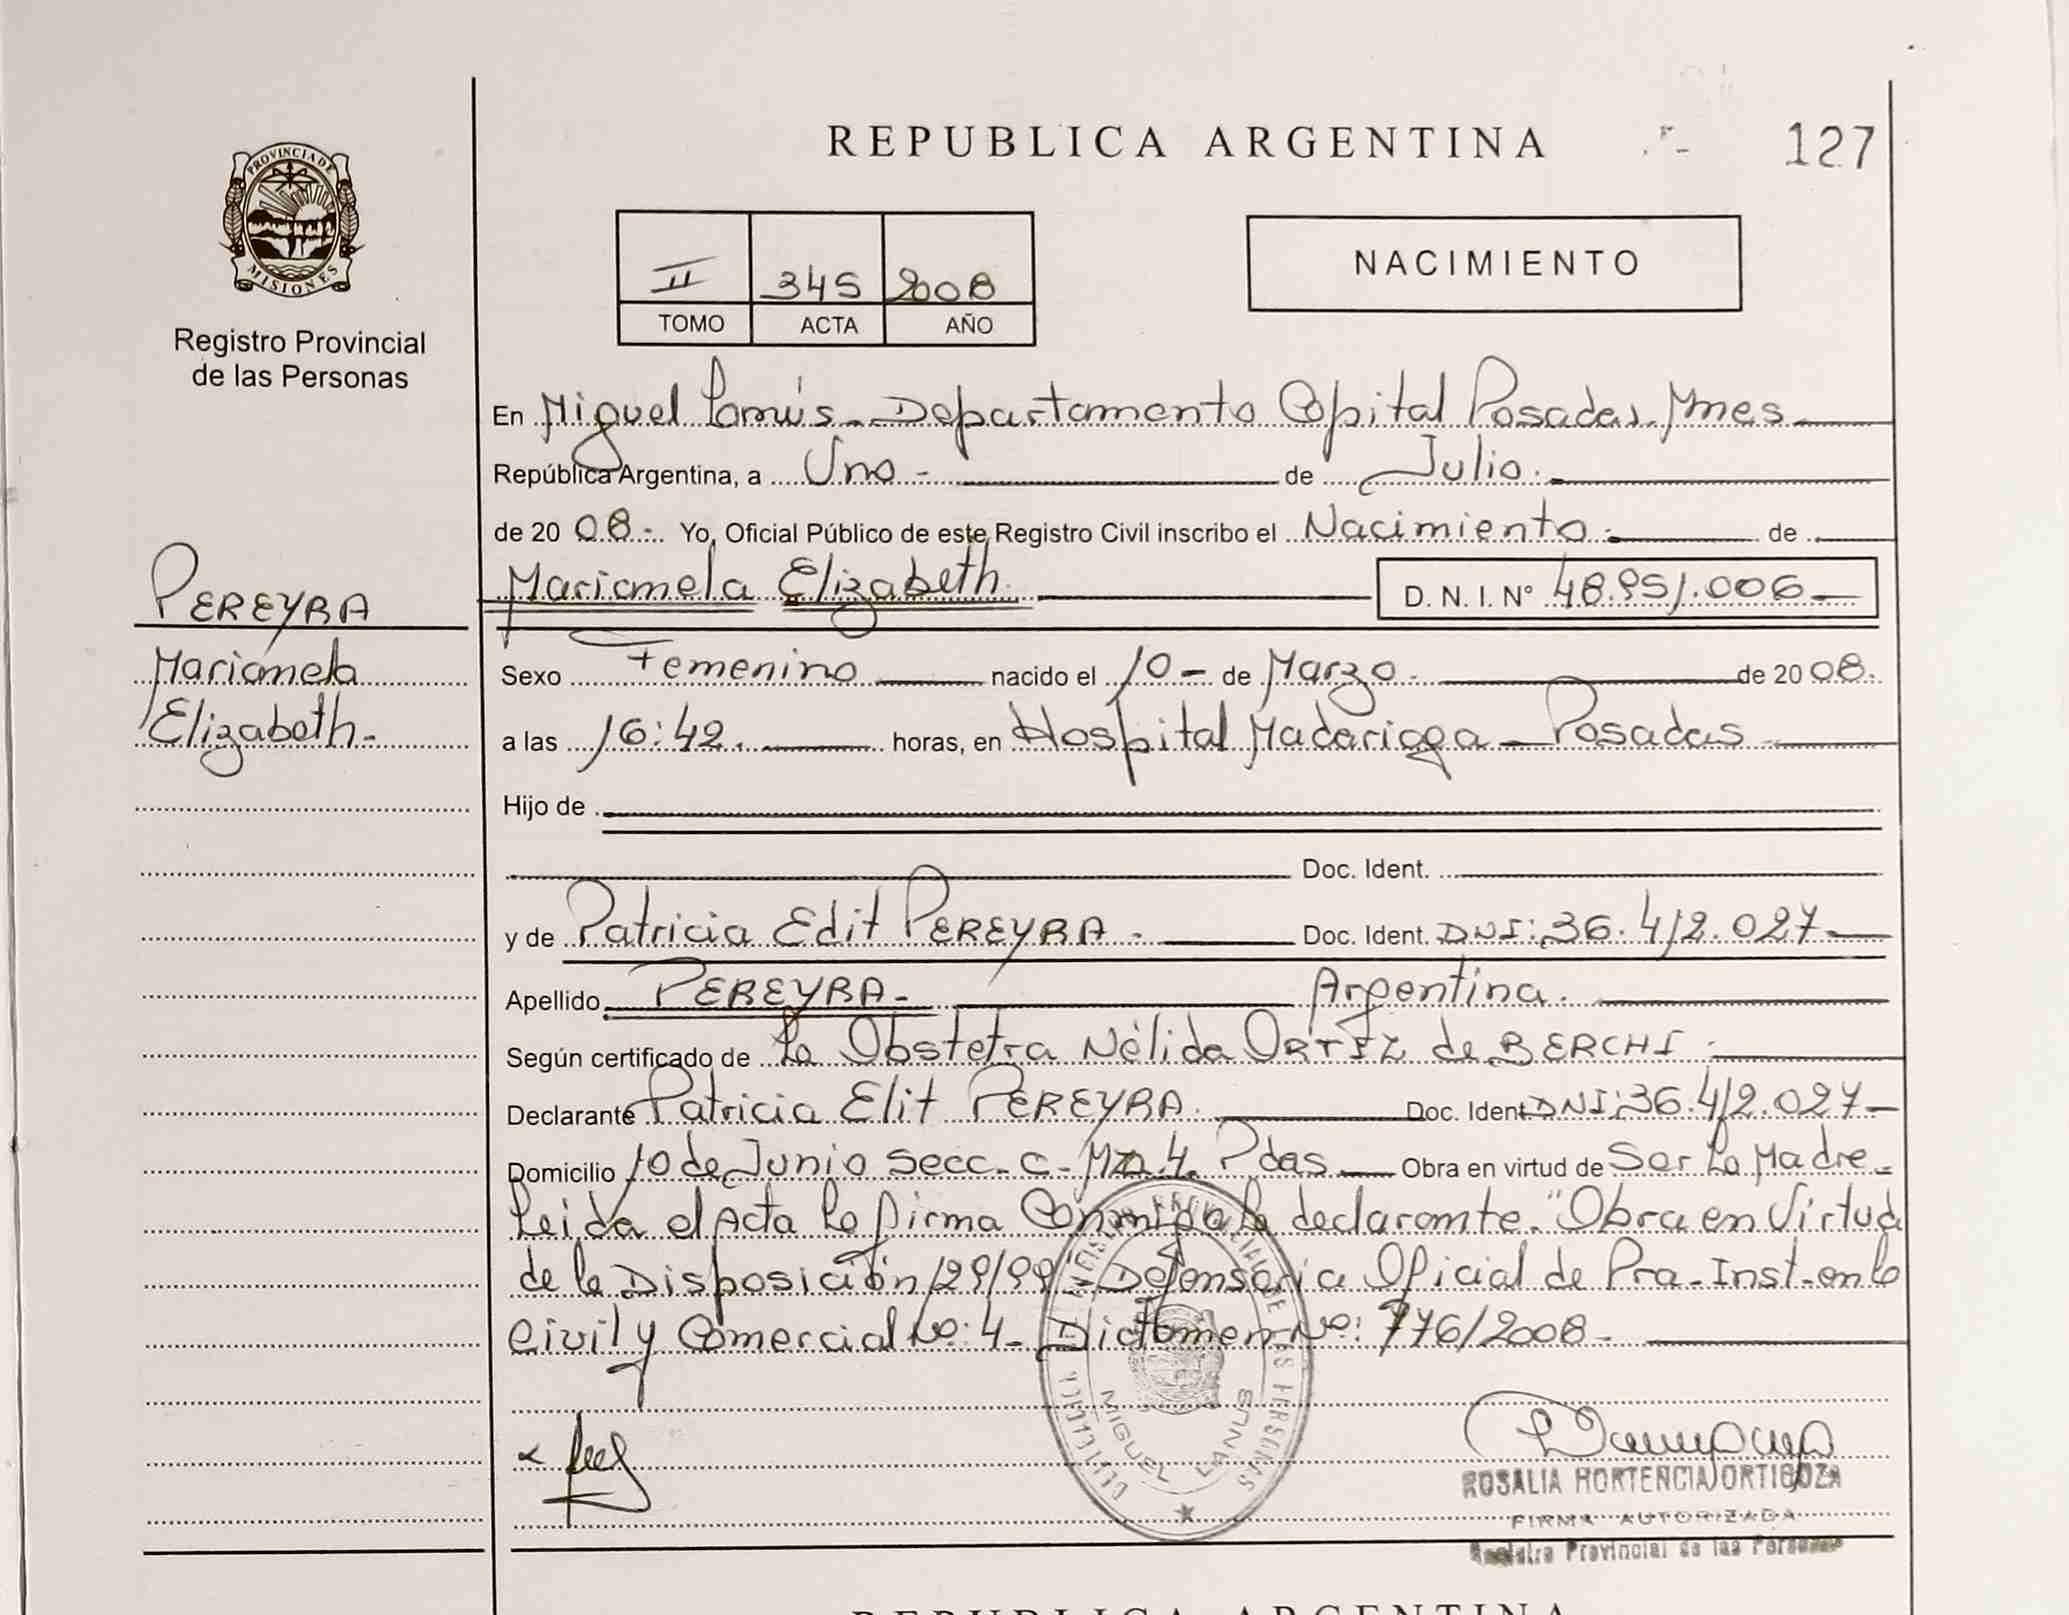 REPUBLICA ARGENTINA
127
PROVINCIA DE
MISIONES
Registro Provincial
de las Personas
II 345 2008
TOMO ACTA AÑO
NACIMIENTO
En Miguel Lanús - Departamento Capital Posadas Mnes
República Argentina, a Uno - de Julio.
de 20 08 - Yo, Oficial Público de este Registro Civil inscribo el Nacimiento de
Mariamela Elizabeth. D. N. I. N° 48.951.006
PEREYRA
Mariamela
Elizabeth -
Sexo Femenino nacido el 10 - de Marzo - de 20 08.
a las 16:42. horas, en Hospital Madariaga - Posadas
Hijo de
Doc. Ident.
y de Patricia Edit PEREYRA - Doc. Ident. DNI: 36.412.027
Apellido PEREYRA - Argentina.
Según certificado de La Obstetra Nélida ORTIZ de BERCHI
Declarante Patricia Elit PEREYRA. Doc. Ident DNI: 36.412.027
Domicilio 10 de Junio Secc. C - Mz 4. Pdas Obra en virtud de Ser La Madre -
Leida el Acta la firma Conmigo la declarante. "Obra en Virtud
de la Disposición 129/99 Defensoria Oficial de Pra - Inst - en lo
Civil y Comercial No: 4 - Dictamen No: 776/2008 -
MIGUEL LANUS
ROSALIA HORTENCIA ORTIGOZA
FIRMA AUTORIZADA
Registro Provincial de las Personas
REPUBLICA ARGENTINA